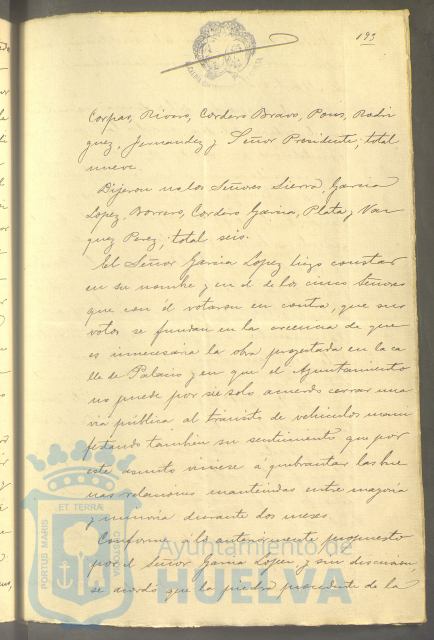 193
Corpas, Rivero, Cordero Bravo, Pons, Rodri
guez, Fernandez y Señor Presidente; total
nueve.
Dijeron no los Señores Sierra, Garcia
Lopez, Borrero, Cordero Garcia, Plata y Vaz
quez Perez; total seis.
El Señor Garcia Lopez hizo constar
en su nombre y en el de los cinco Señores
que con él votaron en contra, que sus
votos se fundan en la creencia de que
es innecesaria la obra proyectada en la ca
lle de Palacio y en que el Ayuntamiento
no puede por sí solo acuerdo cerrar una
via pública al tránsito de vehiculos mani
festando tambien su sentimiento que por
este asunto viniese a quebrantar las bue
nas relaciones mantenidas entre mayoria
y minoria durante dos meses.
Conforme a lo anteriormente propuesto
por el Señor Garcia Lopez y sin discusion,
se acordó que la piedra procedente de la
PORTUS MARIS ET TERRÆ CUSTODIA
Ayuntamiento de
HUELVA